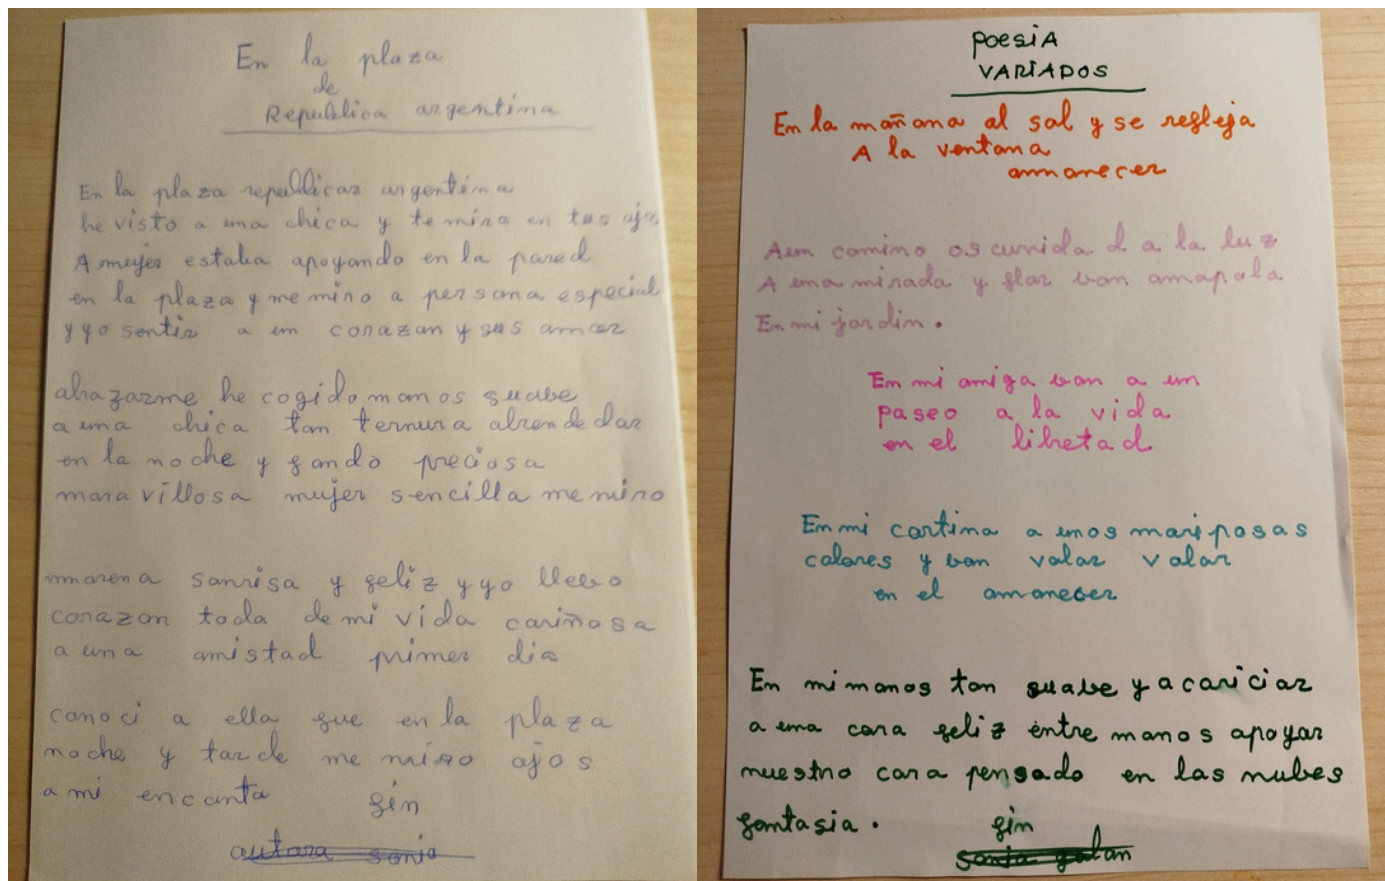 En la plaza
de
Republica argentina
En la plaza republicar argentina
he visto a una chica y te miro en tus ojos
A mujer estaba apoyando en la pared
en la plaza y me miro a persona especial
y yo sentir a un corazon y sus amor
abrazarme he cogido manos suabe
a una chica tan ternura alrendedar
en la noche y gando preciosa
maravillosa mujer sencilla me miro
morena sonrisa y feliz y yo llebo
corazon toda de mi vida cariñosa
a una amistad primer dia
conoci a ella que en la plaza
noche y tarde me miro ojos
a mi encanta fin
autora sonia
POESIA
VARIADOS
En la mañana al sol y se refleja
A la ventana
amanecer
A un camino oscurrida d a la luz
A una mirada y flor ban amapola
En mi jardin.
En mi amiga ban a un
paseo a la vida
en el libretad
En mi cortina a unos mariposas
colores y ban volar volar
en el amanecer
En mi manos tan suabe y acariciar
a una cara feliz entre manos apoyar
nuestro cara pensado en las nubes
fantasia.
fin
sonia galan